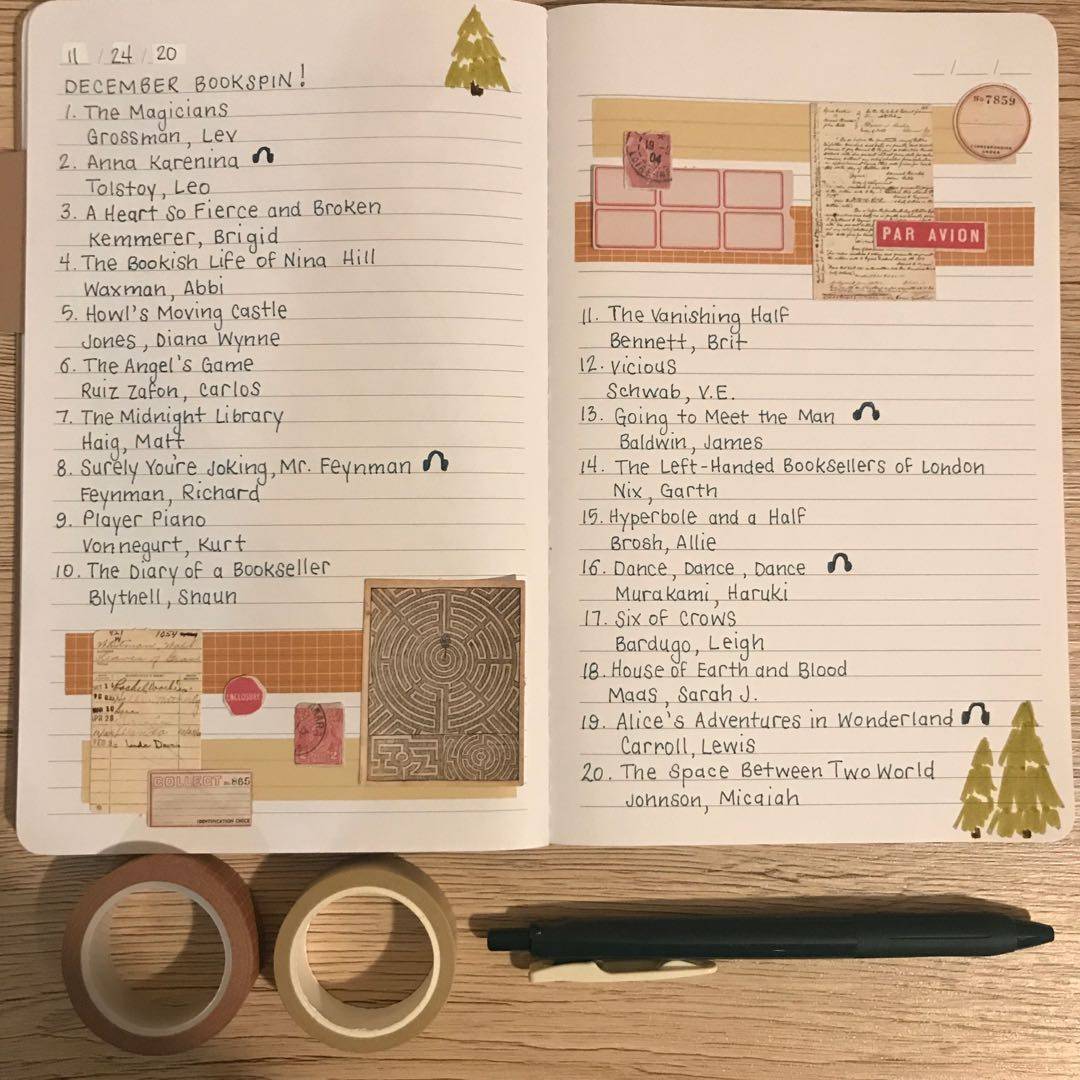 11 / 24 / 20
DECEMBER BOOKSPIN!
1. The Magicians
Grossman, Lev
2. Anna Karenina
Tolstoy, Leo
3. A Heart So Fierce and Broken
Kemmerer, Brigid
4. The Bookish Life of Nina Hill
Waxman, Abbi
5. Howl's Moving Castle
Jones, Diana Wynne
6. The Angel's Game
Ruiz Zafon, Carlos
7. The Midnight Library
Haig, Matt
8. Surely You're Joking, Mr. Feynman
Feynman, Richard
9. Player Piano
Vonnegurt, Kurt
10. The Diary of a Bookseller
Blythell, Shaun
1054
ENCLOSURE
COLLECT No. 865
IDENTIFICATION CHECK
No 7859
CORRESPONDING
19
04
PAR AVION
11. The Vanishing Half
Bennett, Brit
12. Vicious
Schwab, V.E.
13. Going to Meet the Man
Baldwin, James
14. The Left-Handed Booksellers of London
Nix, Garth
15. Hyperbole and a Half
Brosh, Allie
16. Dance, Dance, Dance
Murakami, Haruki
17. Six of Crows
Bardugo, Leigh
18. House of Earth and Blood
Maas, Sarah J.
19. Alice's Adventures in Wonderland
Carroll, Lewis
20. The Space Between Two World
Johnson, Micaiah